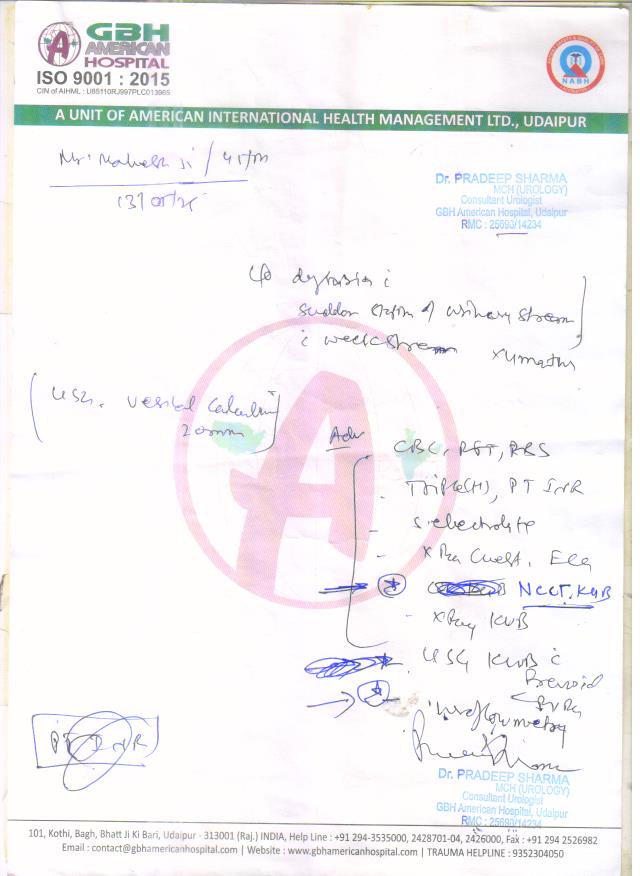 GBH
AMERICAN
HOSPITAL
ISO 9001 : 2015
CIN of AIHML : U85110RJ997PLC013965
NABH
A UNIT OF AMERICAN INTERNATIONAL HEALTH MANAGEMENT LTD., UDAIPUR
Mr. Mahesh Ji /
Dr. PRADEEP SHARMA
MCH (UROLOGY)
Consultant Urologist
GBH American Hospital, Udaipur
RMC : 25693/14234
sudden of urinary stream
weak stream
USG. vesical calculus
20mm
Adv
CBC, RFT, RBS
PT INR
S. electrolyte
X Ray Chest. ECG
NCCT. KUB
X Ray KUB
USG KUB c
Prevoid
PVRU
Uroflowmetry
PT INR
Dr. PRADEEP SHARMA
MCH (UROLOGY)
Consultant Urologist
GBH American Hospital, Udaipur
RMC : 25693/14234
101, Kothi, Bagh, Bhatt Ji Ki Bari, Udaipur - 313001 (Raj.) INDIA, Help Line : +91 294-3535000, 2428701-04, 2426000, Fax : +91 294 2526982
Email : contact@gbhamericanhospital.com | Website : www.gbhamericanhospital.com | TRAUMA HELPLINE : 9352304050